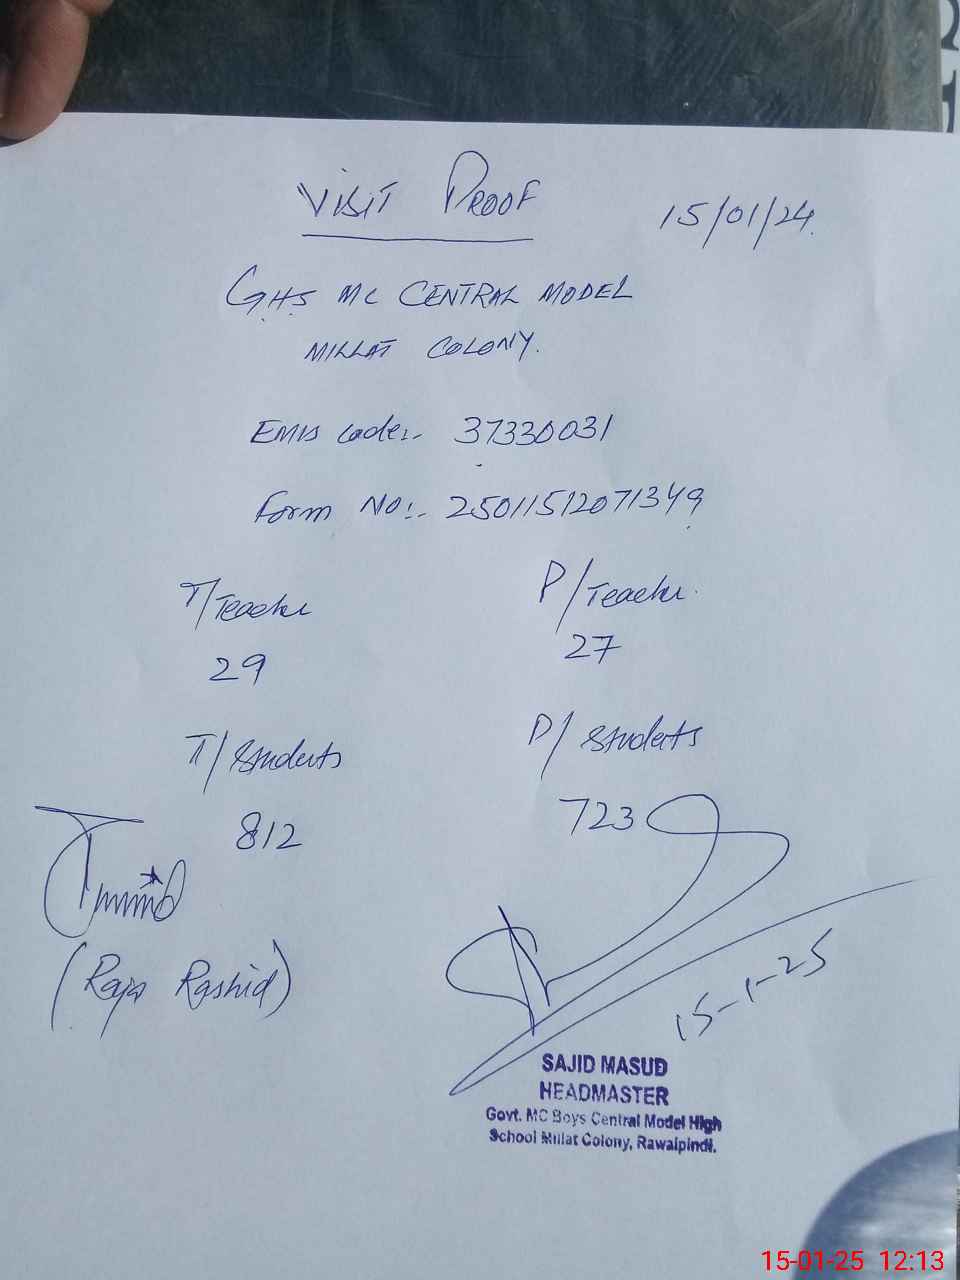 VISIT PROOF
15/01/24.
G.H.S MC CENTRAL MODEL
MILLAT COLONY.
EMIS Code:- 37330031
Form No:- 25011512071349
T/Teacher
P/Teacher.
29
27
T/Students
P/Students
812
723
(Raja Rashid)
15-1-25
SAJID MASUD
HEADMASTER
Govt. MC Boys Central Model High
School Millat Colony, Rawalpindi.
15-01-25 12:13